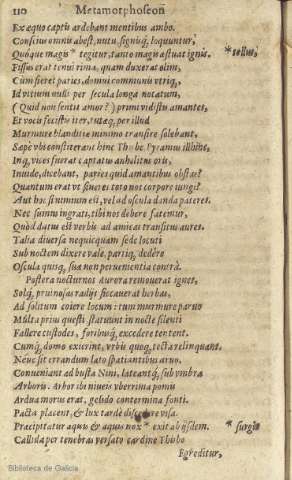 110 Metamorphoseon
Ex equo captis ardebant mentibus ambo.
Conscius omnis abest, nutu, signisq; loquuntur,
Quoque magis * tegitur, tanto magis æstuat ignis. * tectus,
Fissus erat tenui rima, quam duxerat olim,
Cum fieret paries, domui communis vtriq,
Id vitium nulli per secula longa notatum,
(Quid non sentit amor?) primi vidistis amantes,
Et vocis fecistis iter, tutæq; per illud
Murmure blanditiæ minimo transire solebant.
Sæpe vbi constiterant hinc Thisbe, Pyramus illhinc,
Inq, vices fuerat captatus anhelitus oris,
Inuide, dicebant, paries quid amantibus obstas?
Quantum erat vt sineres toto nos corpore iungi?
Aut hoc si nimium est, vel ad oscula danda pateres.
Nec sumus ingrati, tibi nos debere fatemur,
Quòd datus est verbis ad amicas transitus aures.
Talia diuersa nequicquam sede locuti
Sub noctem dixere vale, partiq, dedére
Oscula quisq, suæ non peruenientia contrà.
Postera nocturnos Aurora remouerat ignes,
Solq, pruinosas radijs siccauerat herbas,
Ad solitum coiere locum: tum murmure paruo
Multa prius questi statuunt in nocte silenti
Fallere custodes, foribusq, excedere tentent.
Cumq, domo exierint, vrbis quoq, tecta relinquant.
Neue sit errandum lato spatiantibus aruo.
Conueniant ad busta Nini, lateantq, sub vmbra
Arboris. Arbor ibi niueis vberrima pomis
Ardua morus erat, gelido contermina fonti.
Pacta placent, & lux tardè discedere visa.
Præcipitatur aquis & aquis nox * exit ab ijsdem. * surgit
Callida per tenebras versato cardine Thisbe
Egreditur,
Biblioteca de Galicia